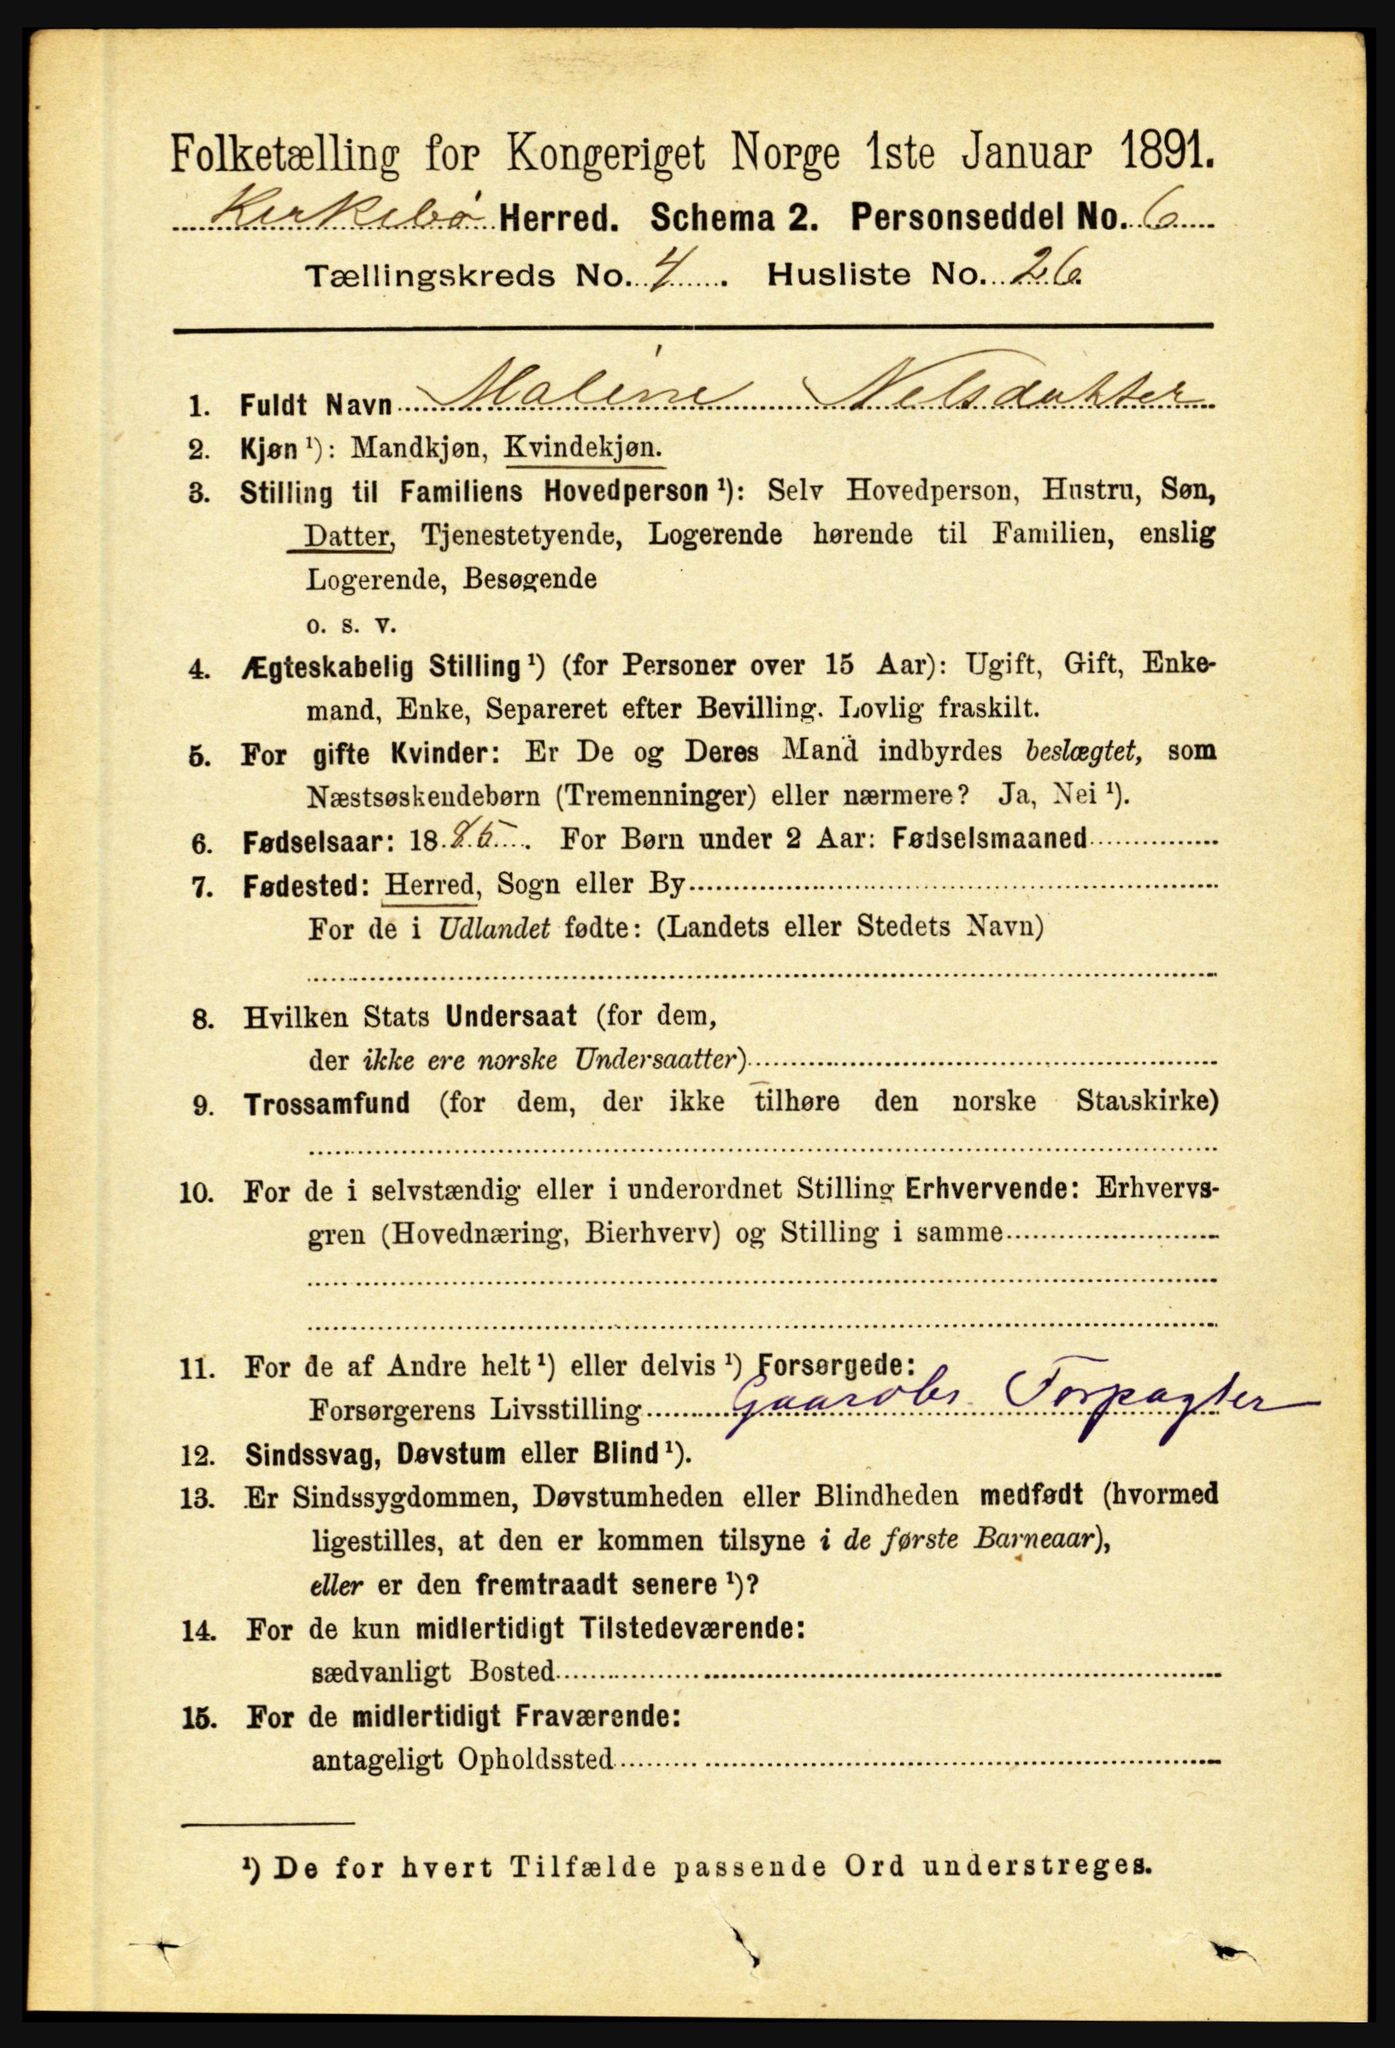 Folketælling for Kongeriget Norge 1ste Januar 1891.
Kirkebø Herred. Schema 2. Personseddel No. 6
Tællingskreds No. 4. Husliste No. 26
1. Fuldt Navn Maline Nelsdatter
2. Kjøn ¹): Mandkjøn, Kvindekjøn.
3. Stilling til Familiens Hovedperson ¹): Selv Hovedperson, Hustru, Søn,
Datter, Tjenestetyende, Logerende hørende til Familien, enslig
Logerende, Besøgende
o. s. v.
4. Ægteskabelig Stilling ¹) (for Personer over 15 Aar): Ugift, Gift, Enke-
mand, Enke, Separeret efter Bevilling. Lovlig fraskilt.
5. For gifte Kvinder: Er De og Deres Mand indbyrdes beslægtet, som
Næstsøskendebørn (Tremenninger) eller nærmere? Ja, Nei ¹).
6. Fødselsaar: 1885. For Børn under 2 Aar: Fødselsmaaned
7. Fødested: Herred, Sogn eller By
For de i Udlandet fødte: (Landets eller Stedets Navn)
8. Hvilken Stats Undersaat (for dem,
der ikke ere norske Undersaatter)
9. Trossamfund (for dem, der ikke tilhøre den norske Statskirke)
10. For de i selvstændig eller i underordnet Stilling Erhvervende: Erhvervs-
gren (Hovednæring, Bierhverv) og Stilling i samme
11. For de af Andre helt ¹) eller delvis ¹) Forsørgede:
Forsørgerens Livsstilling Gaardbr. Forpagter
12. Sindssvag, Døvstum eller Blind ¹).
13. Er Sindssygdommen, Døvstumheden eller Blindheden medfødt (hvormed
ligestilles, at den er kommen tilsyne i de første Barneaar),
eller er den fremtraadt senere ¹)?
14. For de kun midlertidigt Tilstedeværende:
sædvanligt Bosted
15. For de midlertidigt Fraværende:
antageligt Opholdssted
¹) De for hvert Tilfælde passende Ord understreges.